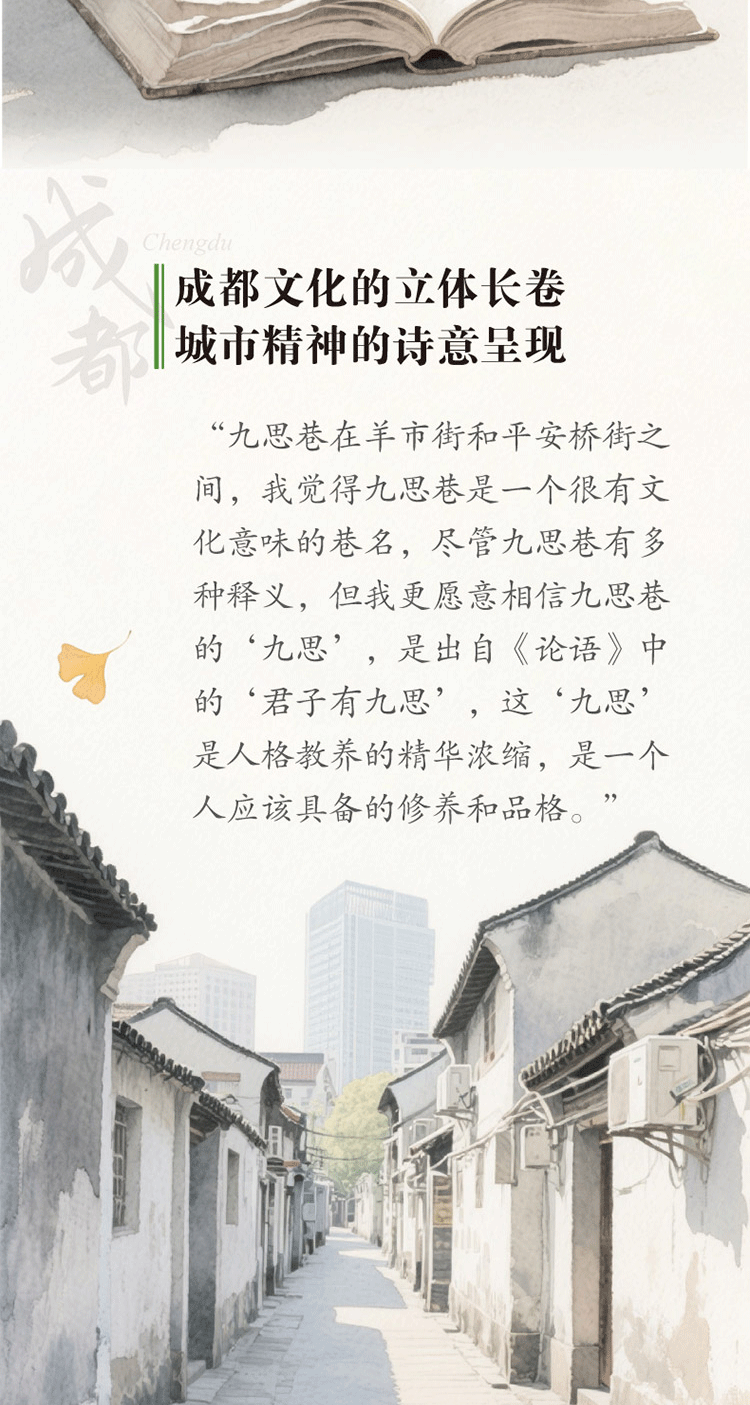 成都
Chengdu
成都文化的立体长卷
城市精神的诗意呈现
“九思巷在羊市街和平安桥街之
间，我觉得九思巷是一个很有文
化意味的巷名，尽管九思巷有多
种释义，但我更愿意相信九思巷
的‘九思’，是出自《论语》中
的‘君子有九思’，这‘九思’
是人格教养的精华浓缩，是一个
人应该具备的修养和品格。”